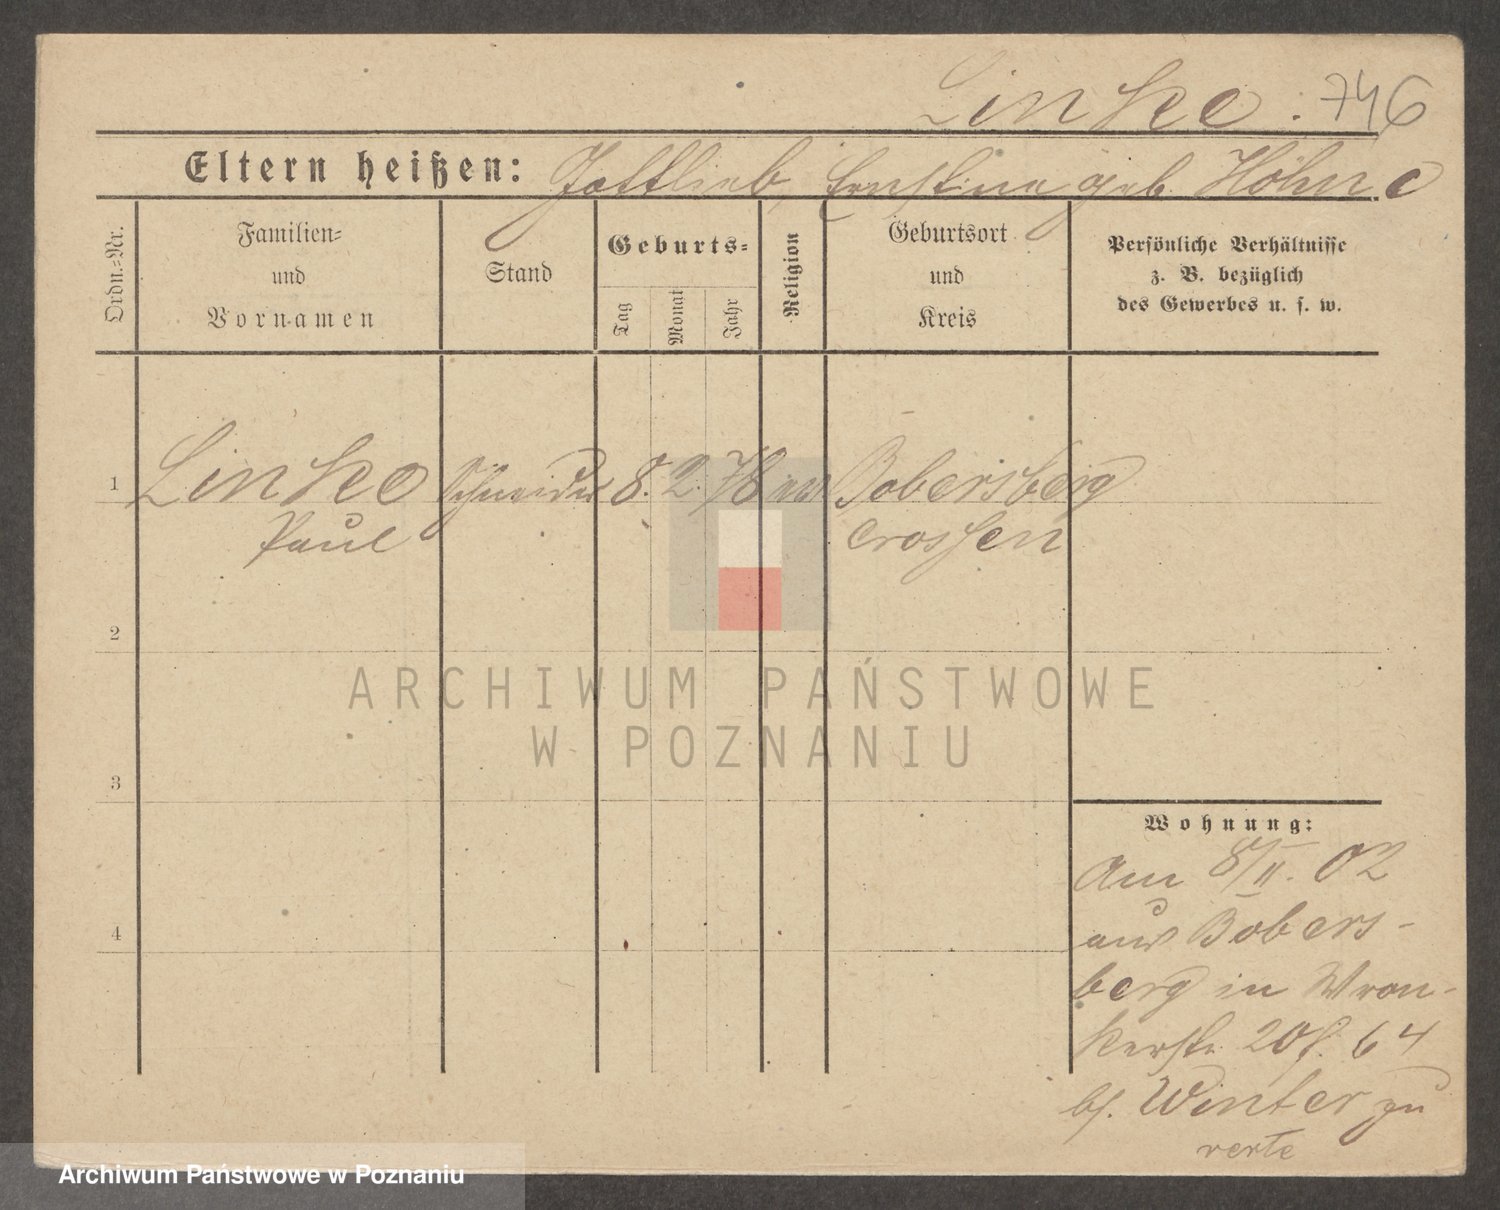 Linke. 746
Eltern heißen: Gottlieb, Ernstine geb. Höhne
Ordn.-Nr.
Familien-
und
Vornamen
Stand
Geburts-
Tag
Monat
Jahr
Religion
Geburtsort
und
Kreis
Persönliche Verhältnisse
z. B. bezüglich
des Gewerbes u. s. w.
1 Linke Schneider 8. 2. 78 ev Bobersberg
Paul Crossen
2
3
4
Wohnung:
Am 8/II. 02
aus Bobers-
berg in Wron-
kerstr. 20
b/. Winter zu
verte
ARCHIWUM PAŃSTWOWE
W POZNANIU
Archiwum Państwowe w Poznaniu